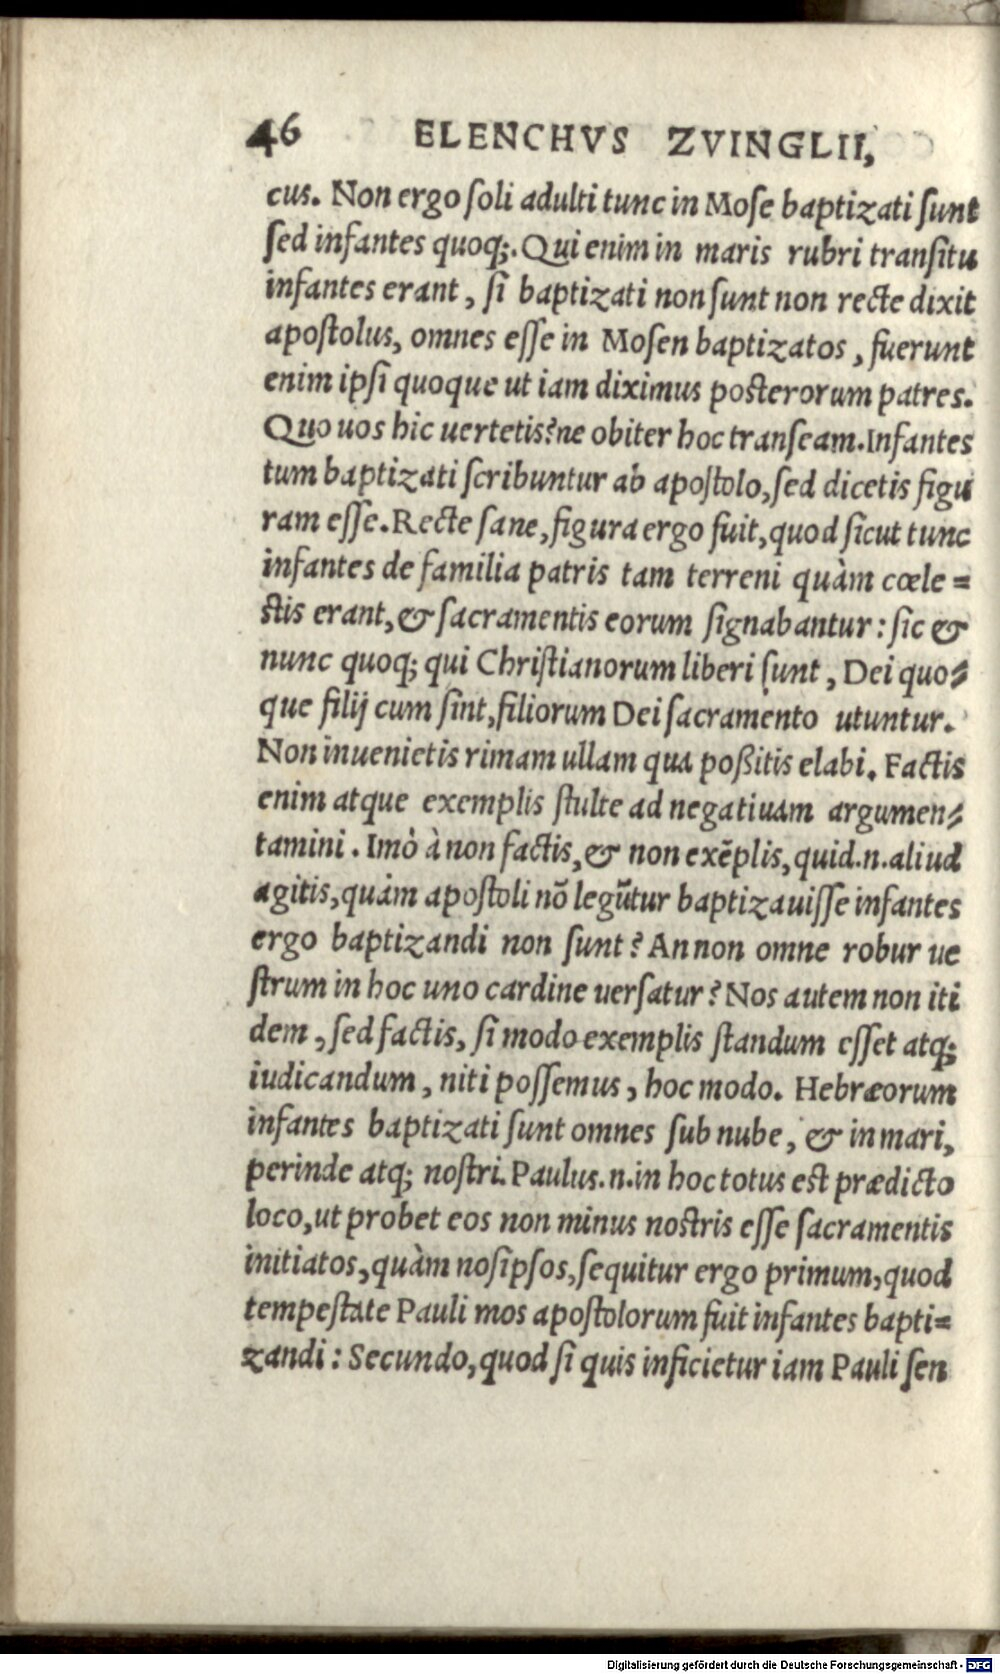 46 ELENCHVS ZVINGLII,
cus. Non ergo ſoli adulti tunc in Moſe baptizati ſunt
ſed infantes quoq;. Qui enim in maris rubri tranſitu
infantes erant, ſi baptizati non ſunt non recte dixit
apoſtolus, omnes eſſe in Moſen baptizatos, fuerunt
enim ipſi quoque ut iam diximus posterorum patres.
Quo uos hic uertetis? ne obiter hoc tranſeam. Infantes
tum baptizati ſcribuntur ab apoſtolo, ſed dicetis figu
ram eſſe. Recte ſane, figura ergo fuit, quod ſicut tunc
infantes de familia patris tam terreni quàm cœle=
stis erant, & ſacramentis eorum ſignabantur: ſic &
nunc quoq; qui Chriſtianorum liberi ſunt, Dei quo=
que filij cum ſint, filiorum Dei ſacramento utuntur.
Non inuenietis rimam ullam qua poßitis elabi. Factis
enim atque exemplis ſtulte ad negatiuam argumen=
tamini. Imò à non factis, & non exẽplis, quid .n. aliud
agitis, quàm apoſtoli nõ legũtur baptizauiſſe infantes
ergo baptizandi non ſunt? An non omne robur ue
ſtrum in hoc uno cardine uerſatur? Nos autem non iti
dem, ſed factis, ſi modo exemplis ſtandum eſſet atq;
iudicandum, niti poſſemus, hoc modo. Hebræorum
infantes baptizati ſunt omnes ſub nube, & in mari,
perinde atq; noſtri. Paulus .n. in hoc totus est prædicto
loco, ut probet eos non minus nostris eſſe ſacramentis
initiatos, quàm noſipſos, ſequitur ergo primum, quod
tempeſtate Pauli mos apoſtolorum fuit infantes bapti=
zandi: Secundo, quod ſi quis inficietur iam Pauli ſen
Digitalisierung gefördert durch die Deutsche Forschungsgemeinschaft - DFG